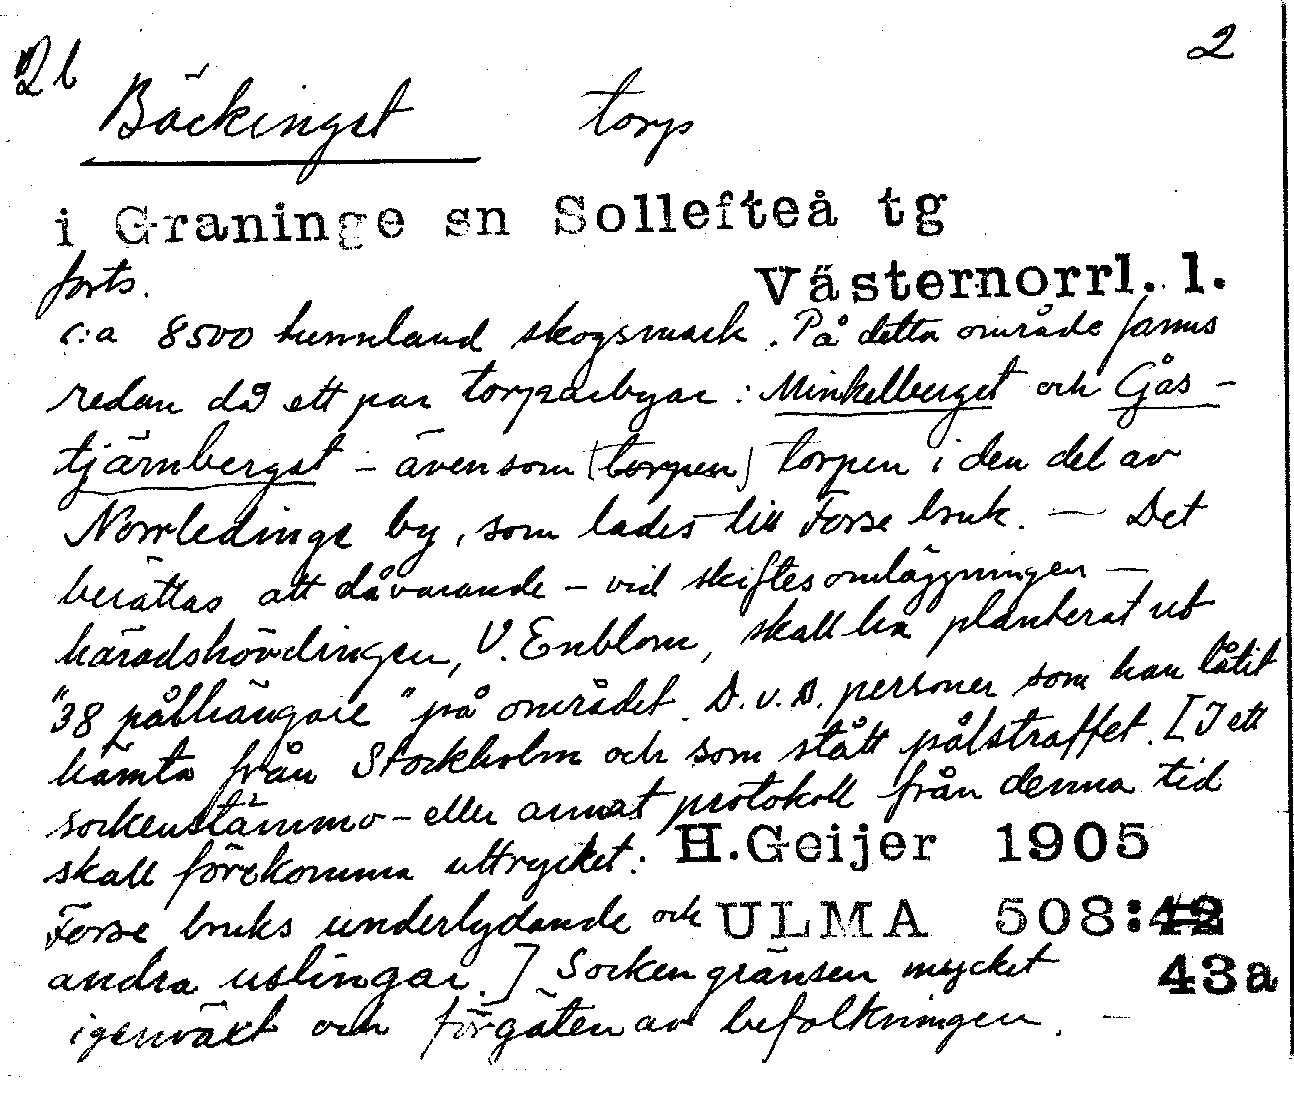 2b 2
Bäckinget torp
i Graninge sn Sollefteå tg
forts. Västernorrl. l.
c:a 8500 tunnland skogsmark. På detta område fanns
redan då ett par torparbyar: Minkelberget och Gås-
tjärnberget – även som (torpen) torpen i den del av
Norrledinge by, som lades till Forse bruk. — Det
berättas att dåvarande – vid skiftesomläggningen —
häradshövdingen, V. Enblom, skall ha planterat ut
"38 pålhängare" på området. D.v.s. personer som han låtit
hämta från Stockholm och som stått pålstraffet. [I ett
sockenstämmo- eller annat protokoll från denna tid
skall förekomma uttrycket: H.Geijer 1905
Forse bruks underlydande och ULMA 508:42
andra uslingar.] Sockengränsen mycket 43a
igenväxt och förgäten av befolkningen. —